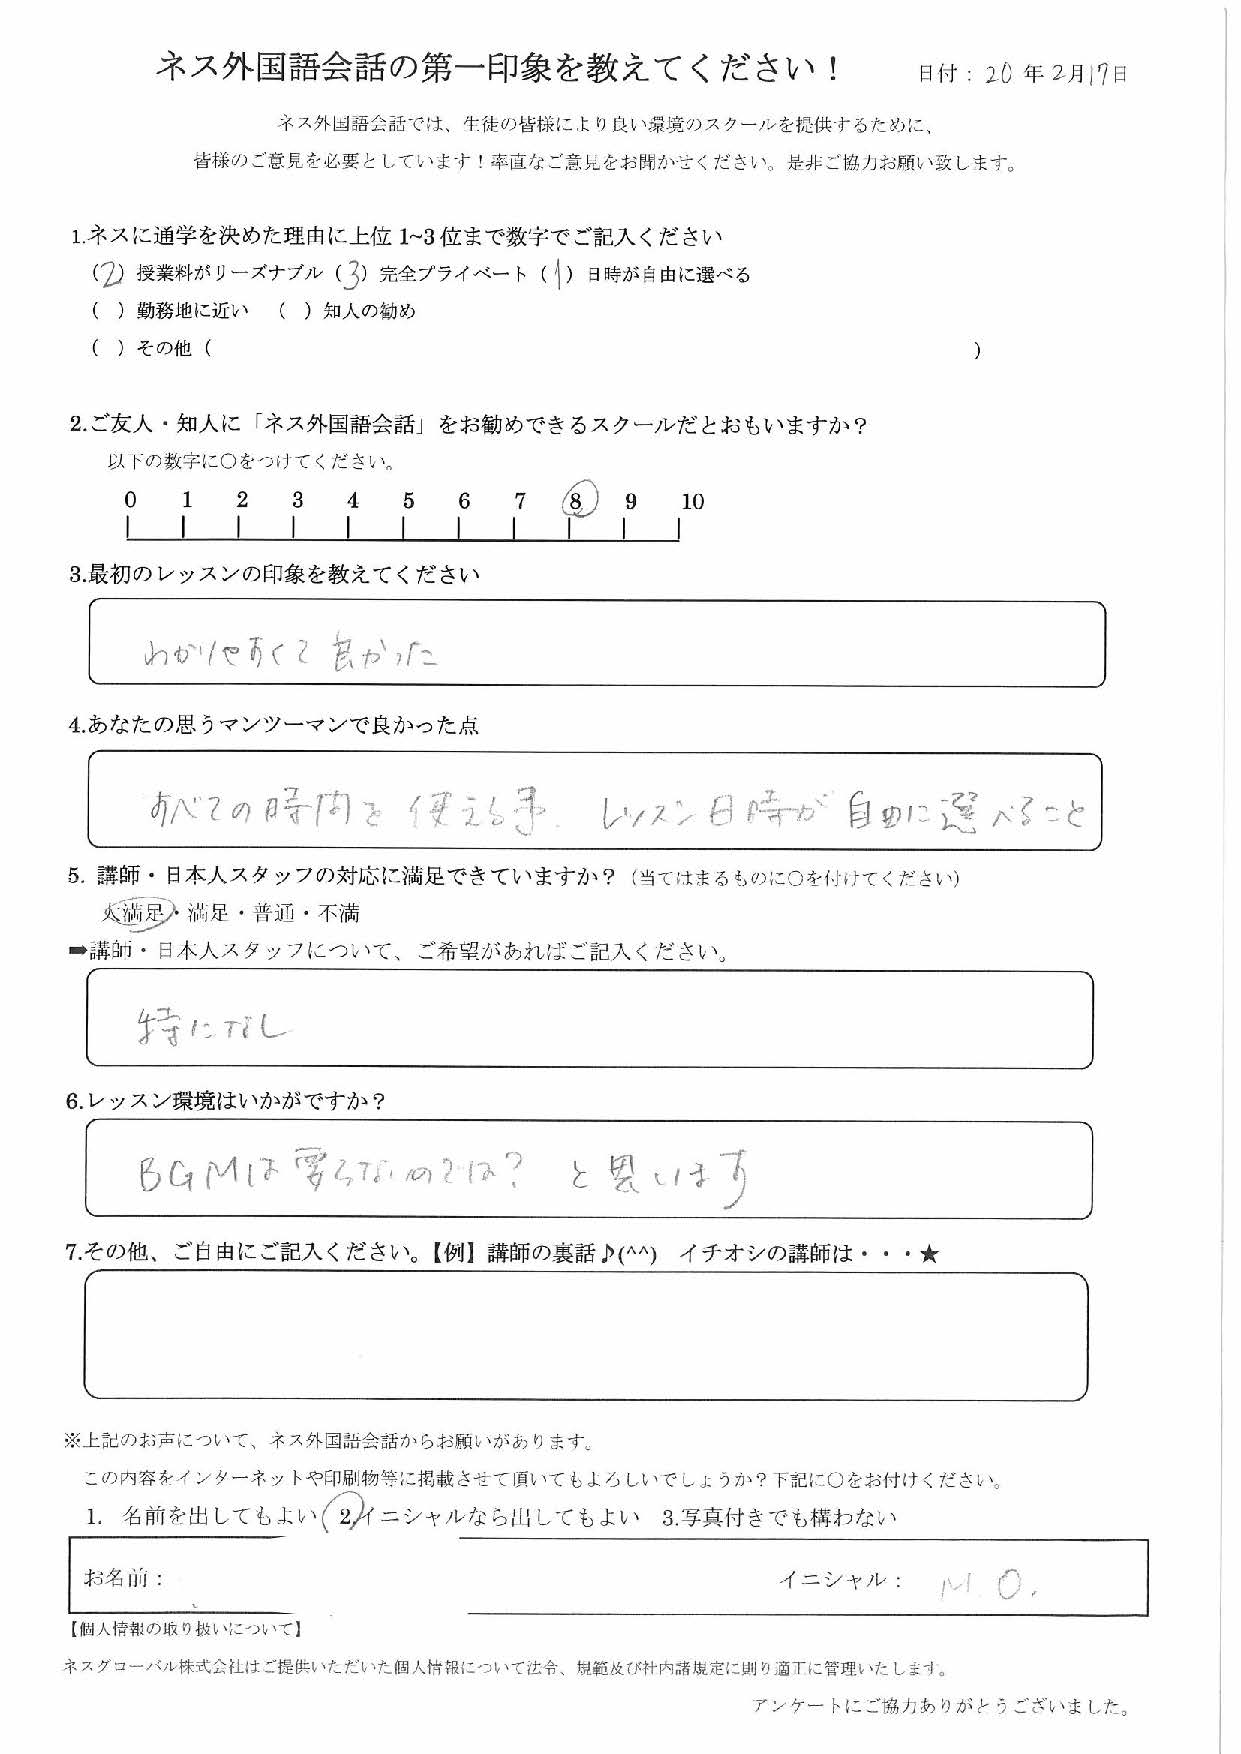 ネス外国語会話の第一印象を教えてください！ 日付：20年2月17日
ネス外国語会話では、生徒の皆様により良い環境のスクールを提供するために、
皆様のご意見を必要としています！率直なご意見をお聞かせください。是非ご協力お願い致します。
1.ネスに通学を決めた理由に上位1~3位まで数字でご記入ください
（2）授業料がリーズナブル（3）完全プライベート（1）日時が自由に選べる
（ ）勤務地に近い （ ）知人の勧め
（ ）その他（ ）
2.ご友人・知人に「ネス外国語会話」をお勧めできるスクールだとおもいますか？
以下の数字に〇をつけてください。
0 1 2 3 4 5 6 7 8 9 10
3.最初のレッスンの印象を教えてください
わかりやすくて良かった
4.あなたの思うマンツーマンで良かった点
すべての時間を使える事、レッスン日時が自由に選べること
5. 講師・日本人スタッフの対応に満足できていますか？（当てはまるものに〇を付けてください）
大満足・満足・普通・不満
➡講師・日本人スタッフについて、ご希望があればご記入ください。
特になし
6.レッスン環境はいかがですか？
BGMは要らないのでは？と思います
7.その他、ご自由にご記入ください。【例】講師の裏話♪(^^) イチオシの講師は・・・★
※上記のお声について、ネス外国語会話からお願いがあります。
この内容をインターネットや印刷物等に掲載させて頂いてもよろしいでしょうか？下記に〇をお付けください。
1. 名前を出してもよい 2.イニシャルなら出してもよい 3.写真付きでも構わない
お名前： イニシャル： M.O.
【個人情報の取り扱いについて】
ネスグローバル株式会社はご提供いただいた個人情報について法令、規範及び社内諸規定に則り適正に管理いたします。
アンケートにご協力ありがとうございました。